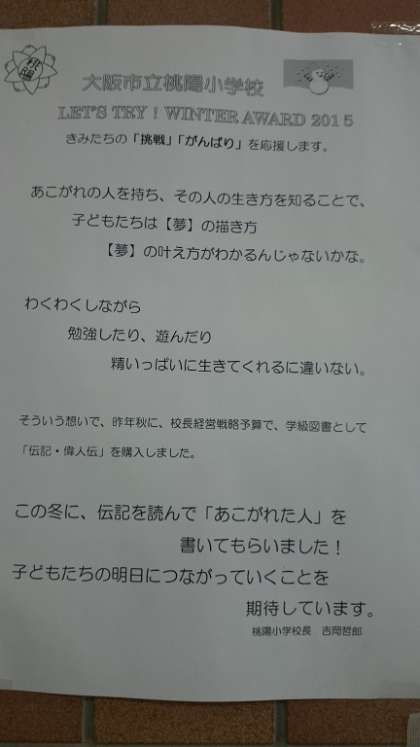 桃陽
大阪市立桃陽小学校
LET'S TRY！WINTER AWARD 2015
きみたちの「挑戦」「がんばり」を応援します。
あこがれの人を持ち、その人の生き方を知ることで、
子どもたちは【夢】の描き方
【夢】の叶え方がわかるんじゃないかな。
わくわくしながら
勉強したり、遊んだり
精いっぱいに生きてくれるに違いない。
そういう想いで、昨年秋に、校長経営戦略予算で、学級図書として
「伝記・偉人伝」を購入しました。
この冬に、伝記を読んで「あこがれた人」を
書いてもらいました！
子どもたちの明日につながっていくことを
期待しています。
桃陽小学校長　吉岡哲郎